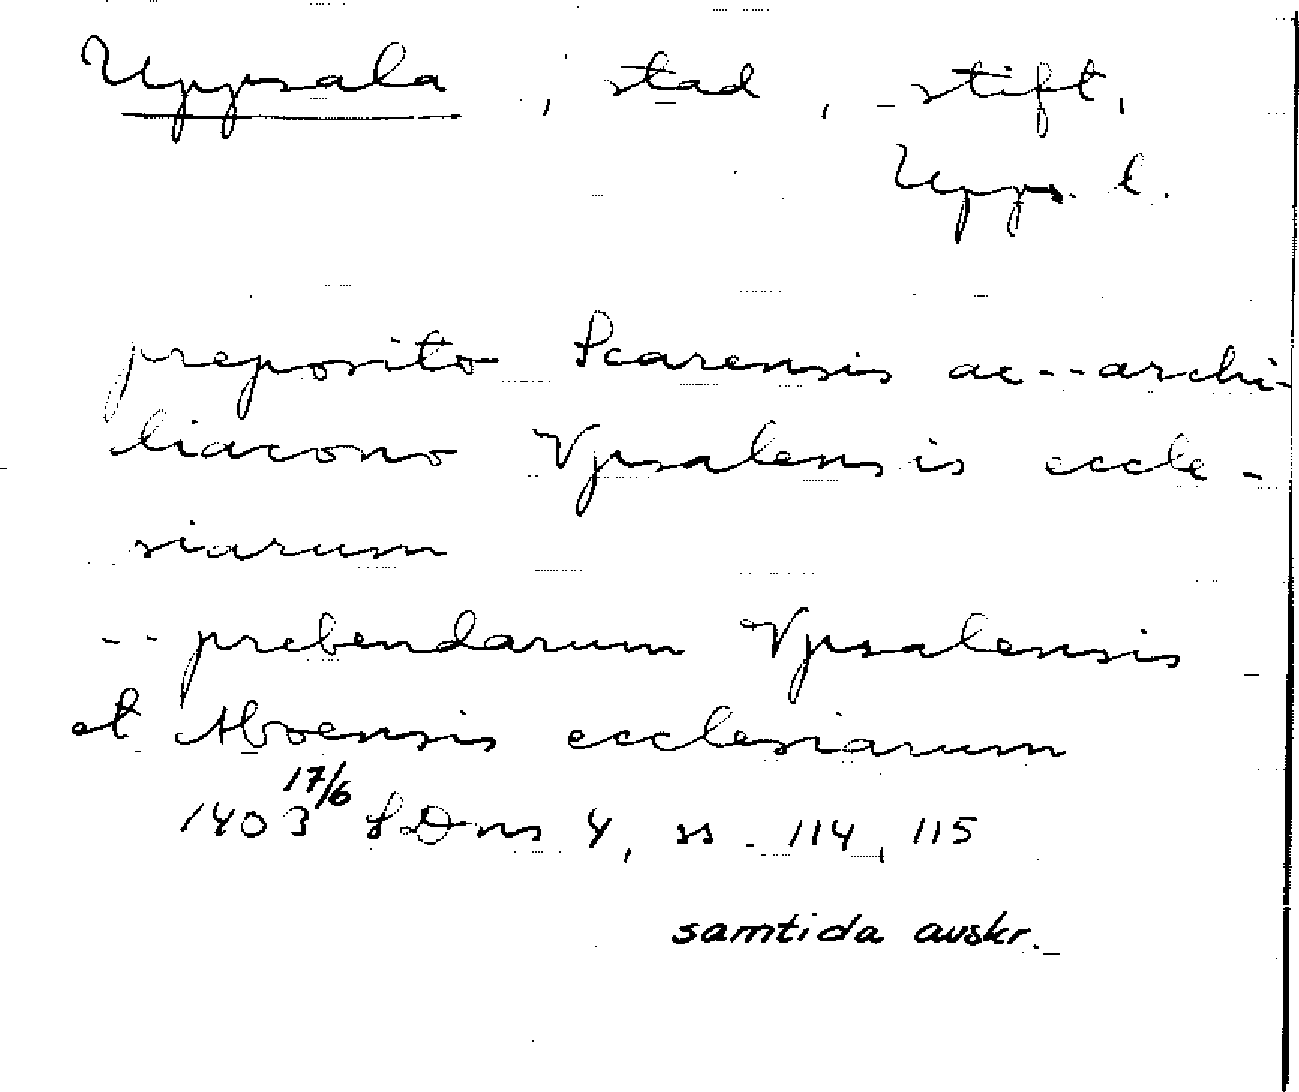 Uppsala, stad, stift,
Upps. l.
preposito Scarensis ac -- archi-
diacono Vpsalensis eccle-
siarum
-- prebendarum Vpsalensis
et Aboensis ecclesiarum
1403 17/6 SDns 4, ss. 114, 115
samtida avskr.